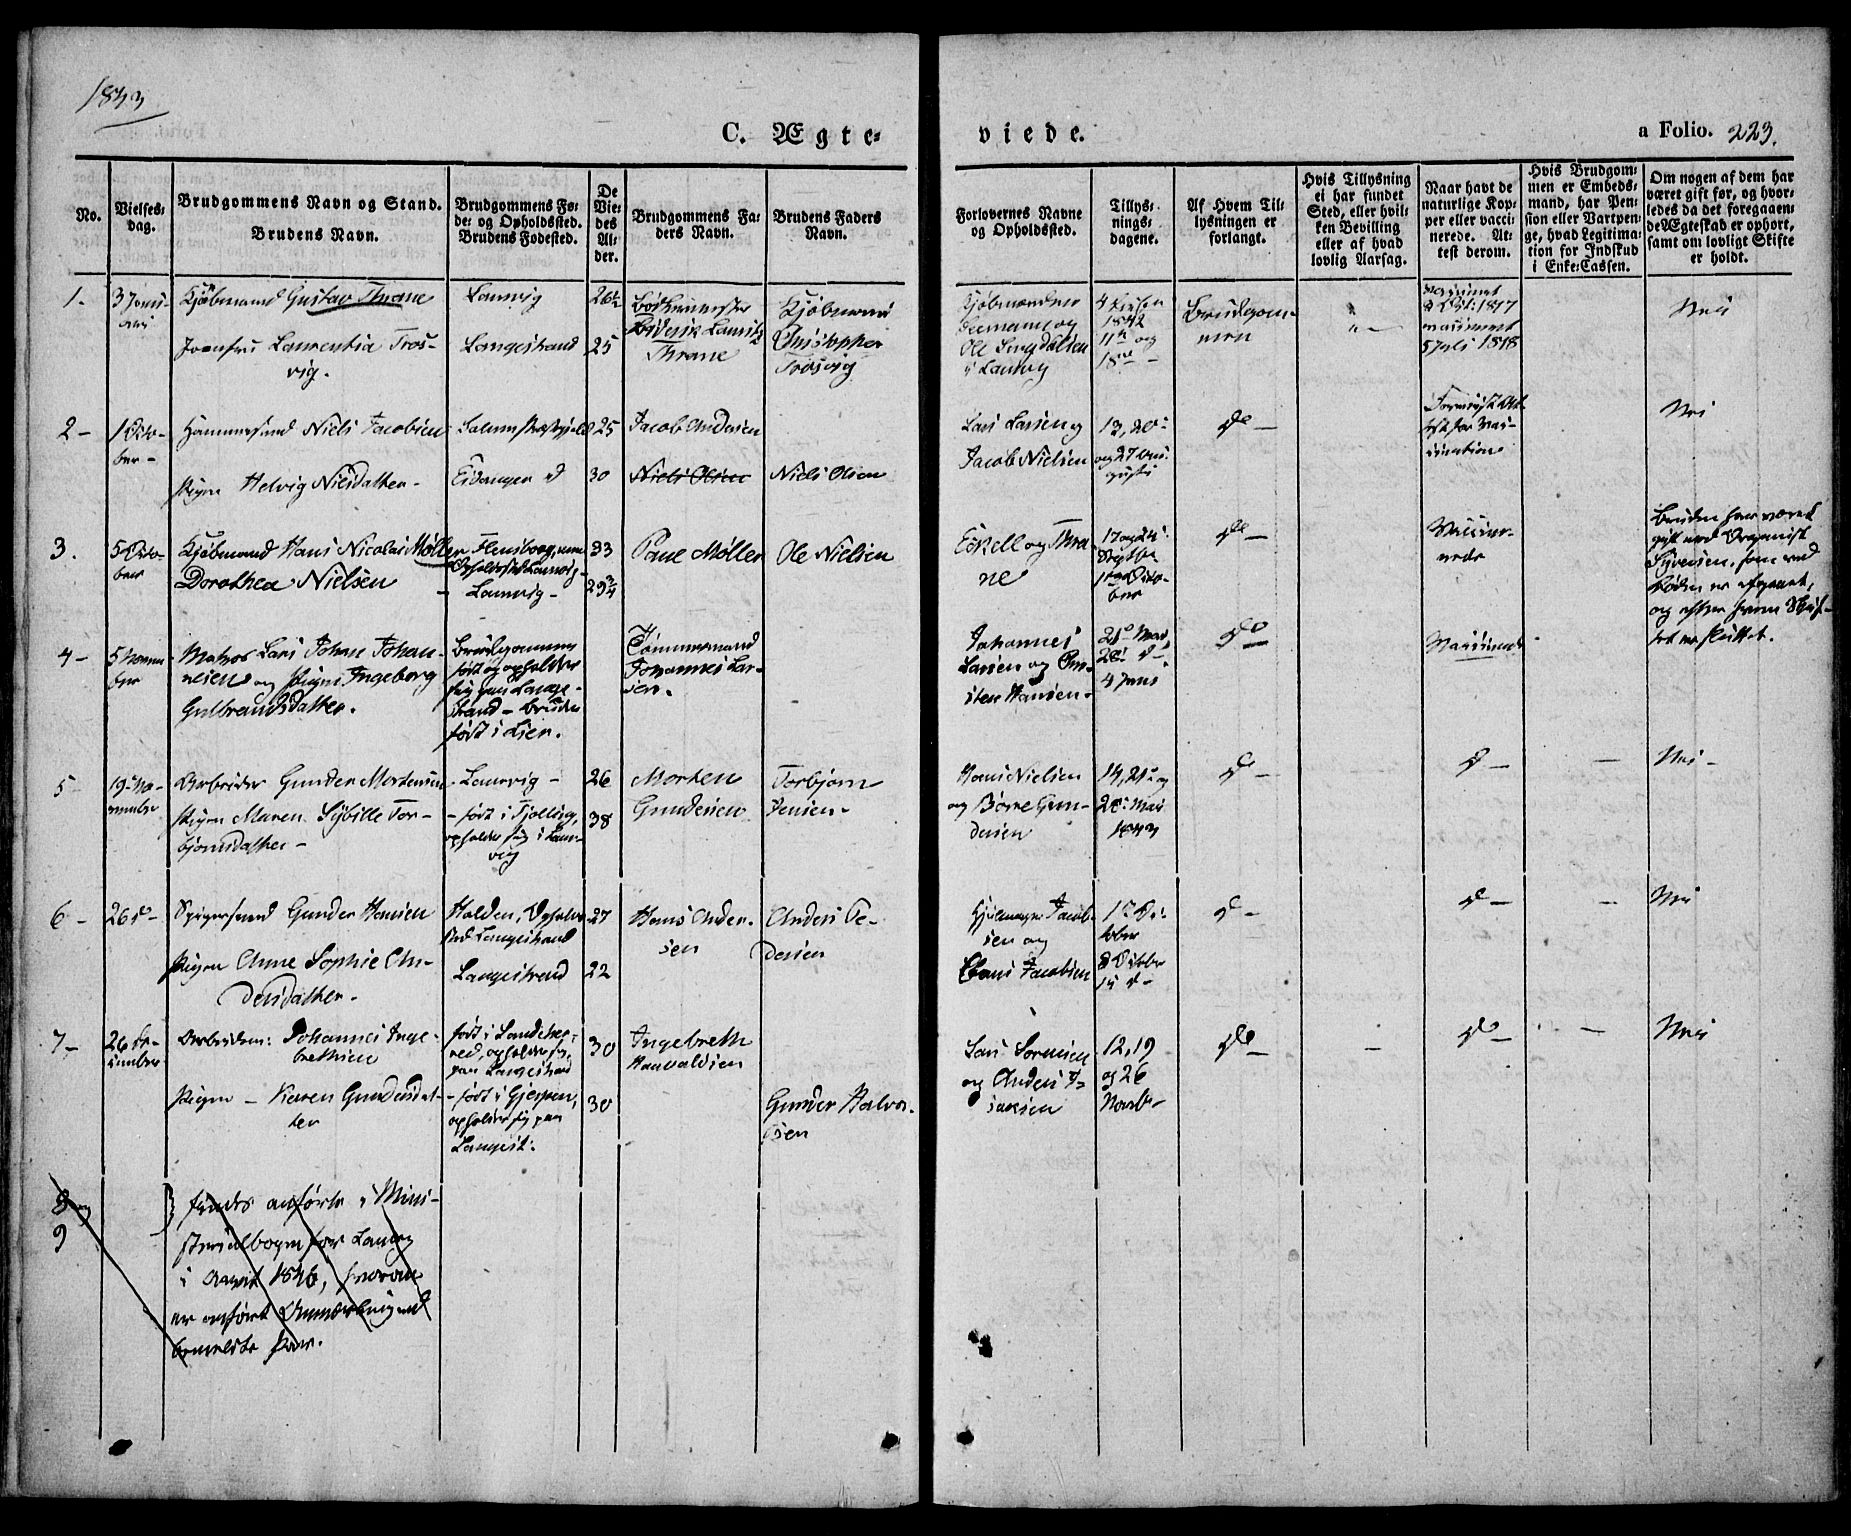 1843
C. Ægte-
viede.
a Folio. 223.
No.
Vielses-
dag.
Brudgommens Navn og Stand.
Brudens Navn.
Brudgommens Fø-
de- og Opholdssted.
Brudens Fødested.
De
Vie-
des
Al-
der.
Brudgommens Fa-
ders Navn.
Brudens Faders
Navn.
Forlovernes Navne
og Opholdssted.
Tillys-
nings-
dagene.
Af Hvem Til-
lysningen er
forlangt.
Hvis Tillysning
ei har fundet
Sted, eller hvil-
ken Bevilling
eller af hvad
lovlig Aarsag.
Naar havt de
naturlige Kop-
per eller vacci-
nerede. At-
test derom.
Hvis Brudgom-
men er Embeds-
mand, har Pen-
sion eller Vartpen-
ge, hvad Legitima-
tion for Indskud
i Enke-Cassen.
Om nogen af dem har
været gift før, og hvor-
ledes da det foregaaen-
de Ægteskab er ophørt,
samt om lovligt Skifte
er holdt.
1.
3 Janu-
ari
Kjøbmand Gustav Thrane
Jomfru Laurentia Tros-
vig.
Laurvig
Langestrand
26½
25
Thrane
Kjøbmand
Christopher
Trosvig
Kjøbmændene
og
Ole
i Laurvig
1842
11te og
18de
Brudgom-
men
1817
vaccineret
5 Juli 1818
Nei
2 -
1 Octo-
ber -
Niels Jacobsen
Pigen Helvig Nielsdatter -
Eidanger
25
30
Jacob Andersen
Niels Olsen
Niels Olsen
Lars Larsen og
Jacob Nielsen
13, 20
og 27 Au-
gusti
do -
Nei
3.
5 Octo-
ber
Kjøbmand Hans Nicolai Møller
Dorothea Nielsen
Flensborg, nu
Opholdsted Laurvig -
- Laurvig -
33
29¾
Paul Møller
Ole Nielsen
Eskell og Thra-
ne
17 og 24
Septbr
1 Octo-
ber
do -
Vaccine-
rede
Bruden har været
gift med Organist
, som ved
Døden er afgaaet,
og efter hvem Skif-
tet er sluttet.
4 -
5 Novem-
ber
Matros Lars Johan Johan-
nesen og Pigen Ingeborg
Gulbrandsdatter.
Brudgommen
født og opholder
sig paa Lange-
strand - Bruden
født i Lier.
Tømmermand
Johannes Lar-
sen.
Johannes
Larsen og
Hansen -
21 Mai
28 do
4 Juni
do
Vaccinerede
5 -
19 No-
vember
Arbeider Gunder Mortensen
Pigen Maren Sybille Tor-
bjørnsdatter -
- Laurvig -
- født i Tjølling,
opholder sig i Laur-
vig
26
38
Morten
Gundersen
Torbjørn
Jensen -
Hans Nielsen
og Børre Gun-
dersen
14, 21 og
28 Mai
1843
do -
do -
-
Nei -
6 -
26 do -
Gunder Hansen
Pigen Anne Sophie An-
dersdatter -
Halden, Opholds-
sted Langestrand
Langestrand
27
22
Hans Ander-
sen
Anders Pe-
dersen
Jacob-
sen og
Jacobsen
1 Oc-
tober
8 Octbr
15 do -
do -
do -
-
Nei
7 -
26 De-
cember
Arbeidsm: Johannes Inge-
brethsen
Pigen - Karen Gundersdat-
ter
født i Sandehe-
red, opholder sig
paa Langestrand
- født i Gjerpen,
opholder sig paa
Langest:
30
30
Ingebreth
Haavaldsen
Gunder Halvor-
sen
Lars Sørensen
og Anders I-
saksen
12, 19
og 26
Novbr -
do -
-
do -
-
Nei
8 og
9
findes anførte i Mini-
sterialbogen for Laurvig
i Aaret 1846, hvorom
er anført Anmærkning ved
bemeldte Par.